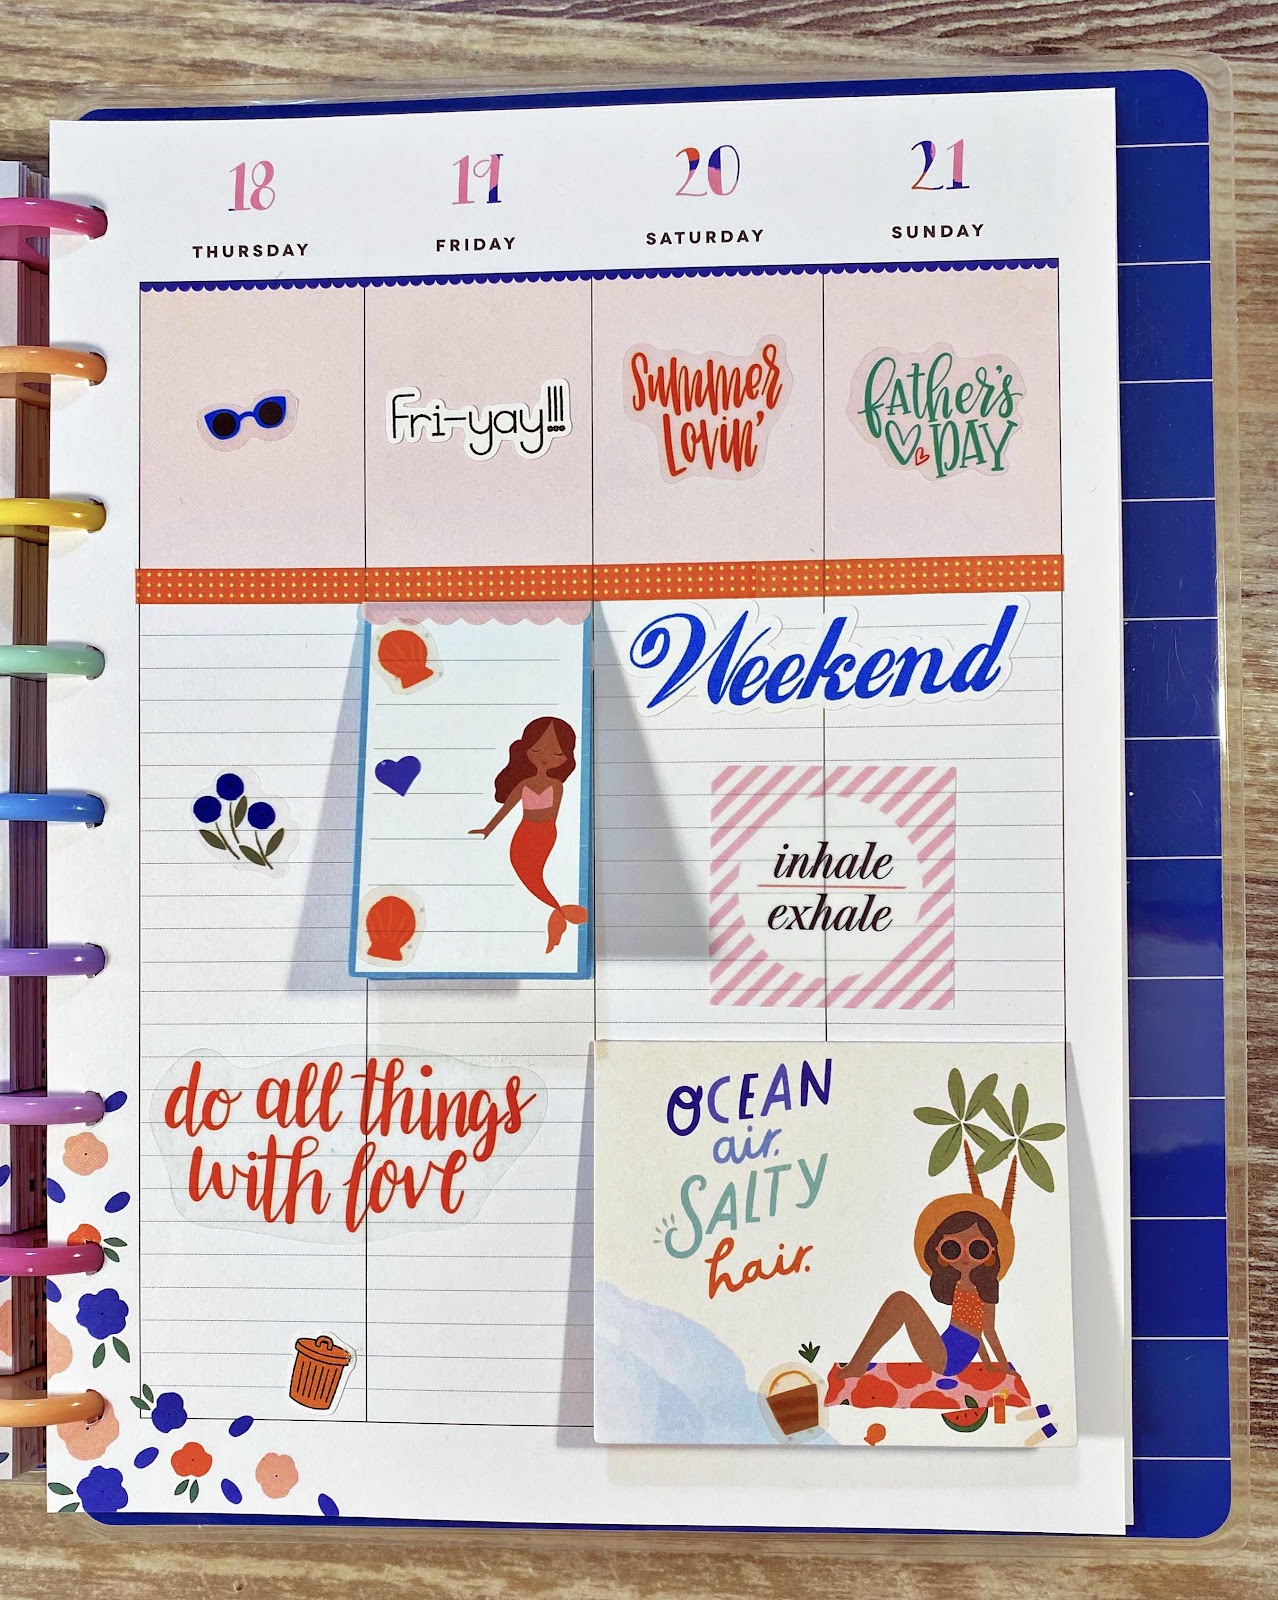 18 19 20 21
THURSDAY FRIDAY SATURDAY SUNDAY
Fri-yay!!!
Summer
Lovin'
father's
DAY
Weekend
inhale
exhale
do all things
with love
OCEAN
air.
SALTY
hair.